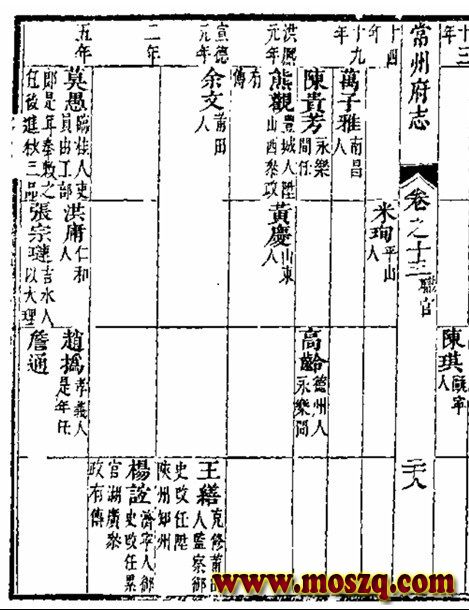 十三
陳琪 甌寧人
常州府志 卷之十三 職官 二十八
十四年
米珣 平山人
十九年
萬子雅 南昌人
陳貴芳 永樂間任
高齡 德州人永樂間
洪熙元年
熊觀 豐城人陞山西參政有傳
黃慶 山東人
宣德元年
余文 莆田人
王繕 克修莆田人監察御史改任陞陝州知州
二年
楊誼 濟寧人御史改任累官湖廣參政有傳
五年
莫愚 臨桂人吏員由工部郎是年奉敕之任後進秩三品
洪庸 仁和人
趙撝 孝義人是年任
張宗璉 吉水人以大理
詹通
www.moszq.com